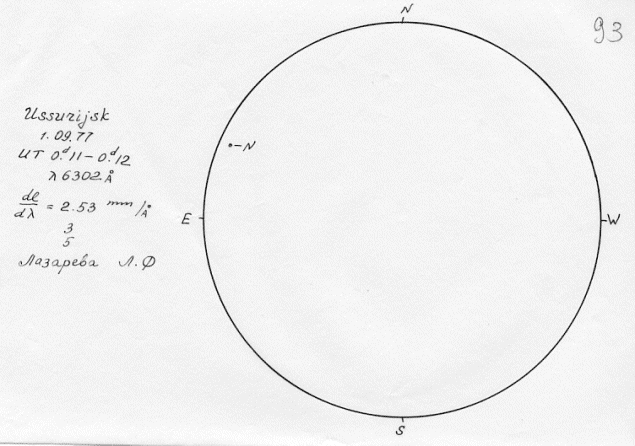 N
93
Ussurijsk
1.09.77
UT 0.ᵈ11 – 0.ᵈ12
λ 6302 Å
dl/dλ = 2.53 mm/Å
3
5
Лазарева Л.Ф
•-N
E
W
S